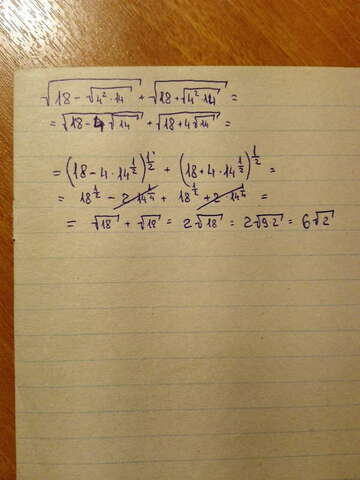 √(18 - √(4²·14)) + √(18 + √(4²·14)) =
= √(18 - 4√14) + √(18 + 4√14) =
= (18 - 4·14^(1/2))^(1/2) + (18 + 4·14^(1/2))^(1/2) =
= 18^(1/2) - 2·14^(1/4) + 18^(1/2) + 2·14^(1/4) =
= √18 + √18 = 2√18 = 2√(9·2) = 6√2